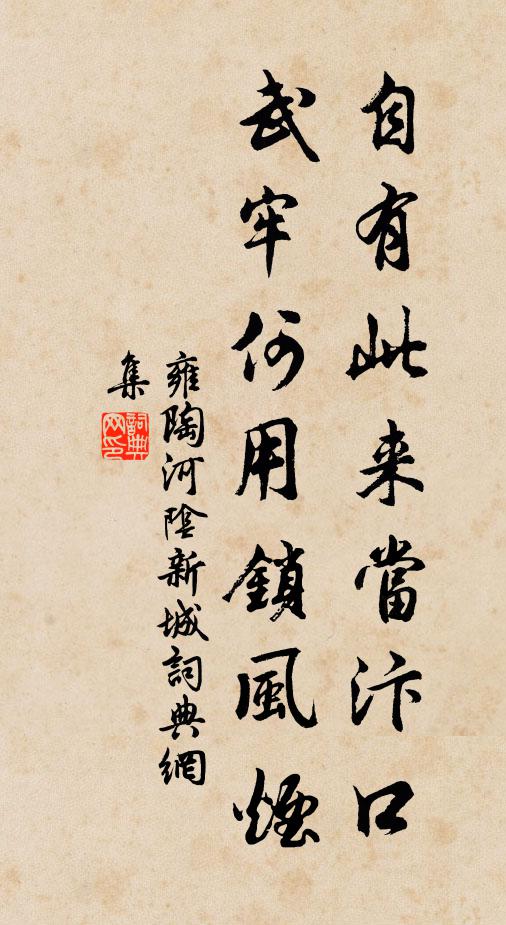 自有此来當汴口
武牢何用鎖風煙
雍陶河陰新城詞典網
集
詞典網印